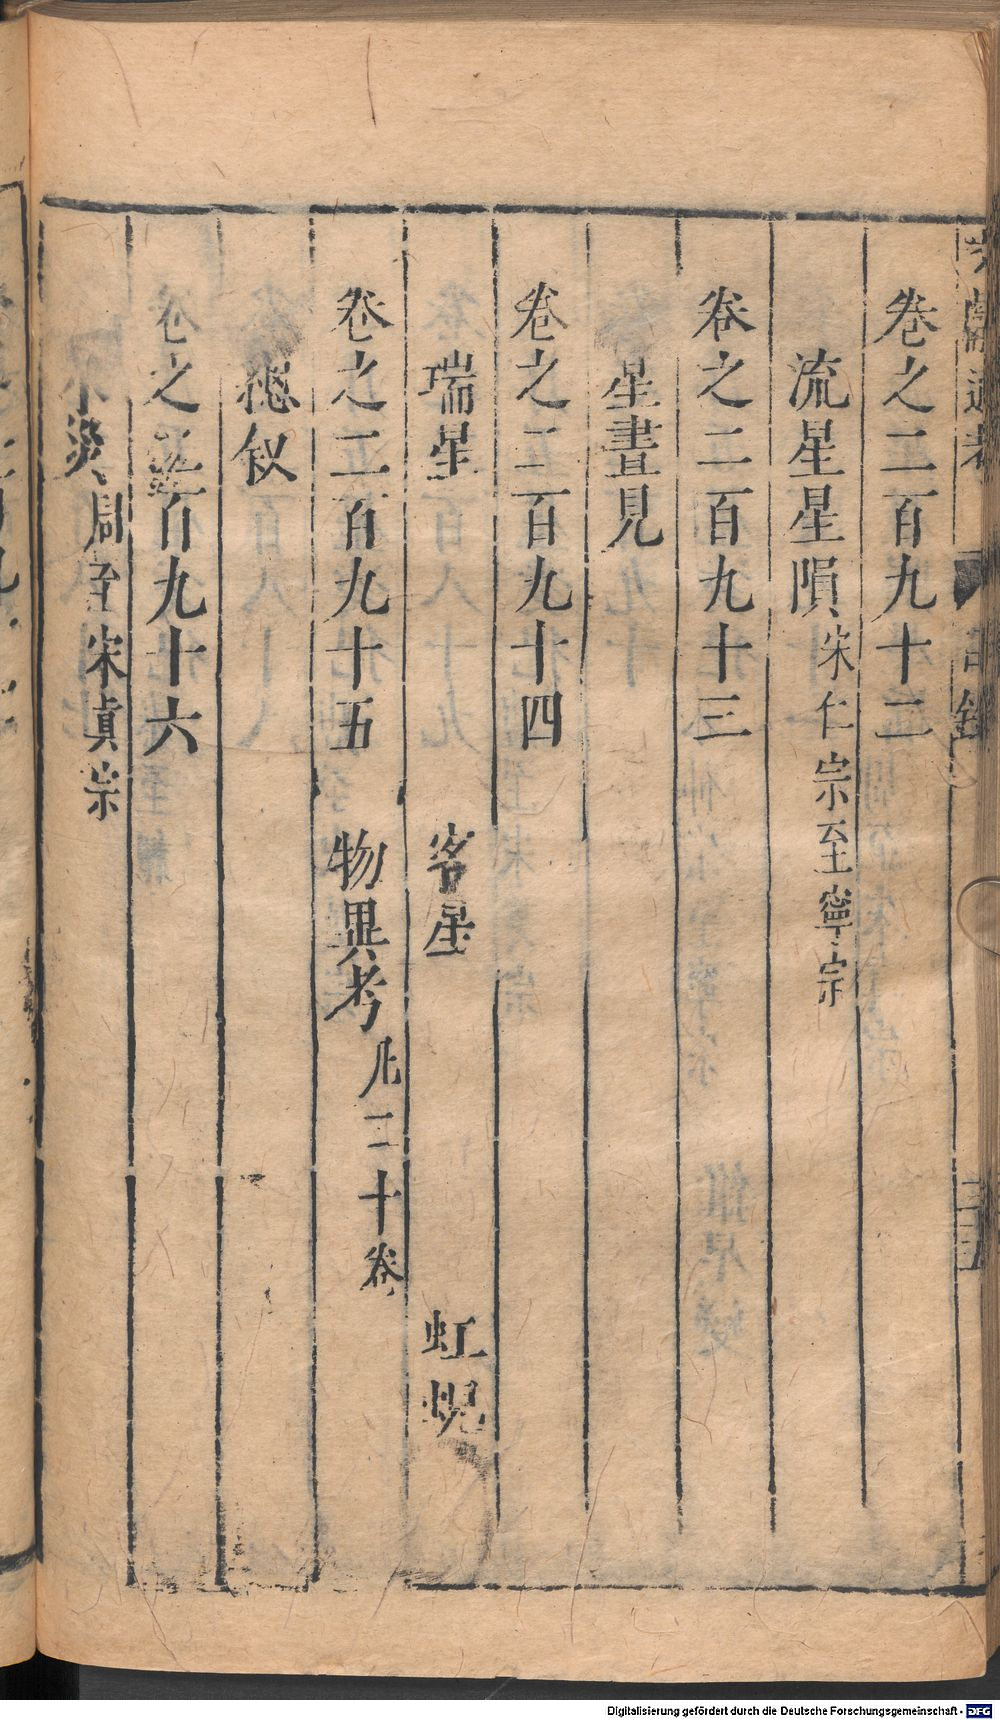 文獻通考 目錄 三十五
卷之二百九十二
流星星隕 宋仁宗至寧宗
卷之二百九十三
星晝見
卷之二百九十四
瑞星 客星 虹蜺
卷之二百九十五 物異考 凡二十卷
總敘
卷之二百九十六
水災 周至宋真宗
Digitalisierung gefördert durch die Deutsche Forschungsgemeinschaft - DFG